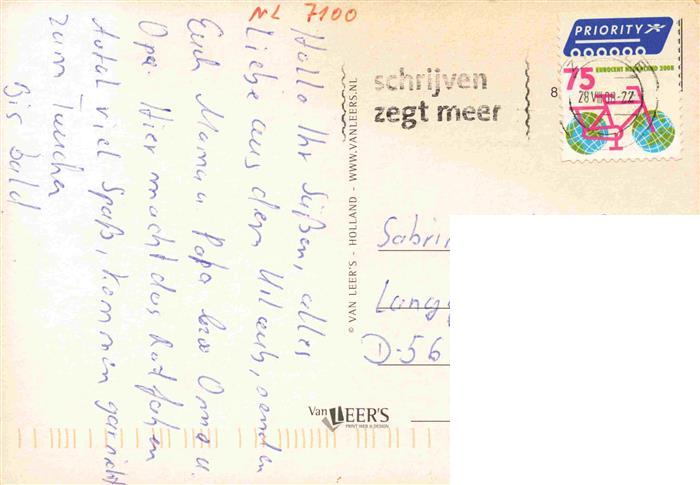 NL 7100
Hallo Ihr Süßen, alles
Liebe aus dem Urlaub, senden
Euch Mama u. Papa bzw Oma u.
Opa. Hier macht das Radfahren
total viel Spaß, kommen gar nicht
zum Tauchen
Bis bald
© VAN LEER'S - HOLLAND - WWW.VANLEERS.NL
schrijven
zegt meer
PRIORITY
75 EUROCENT NEDERLAND 2008
8
28 VIII 08-22
Sabrin
Lang
D-56
Van LEER'S
PRINT WEB & DESIGN